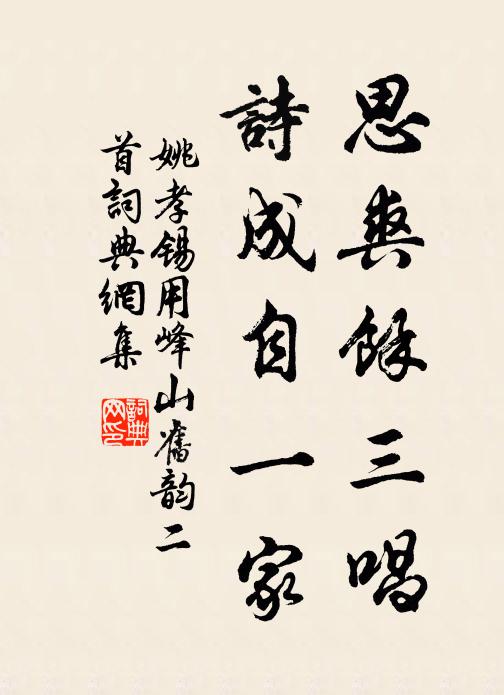 思爽餘三唱
詩成自一家
姚孝錫用峰山舊韵二
首詞典網集
詞典
网印